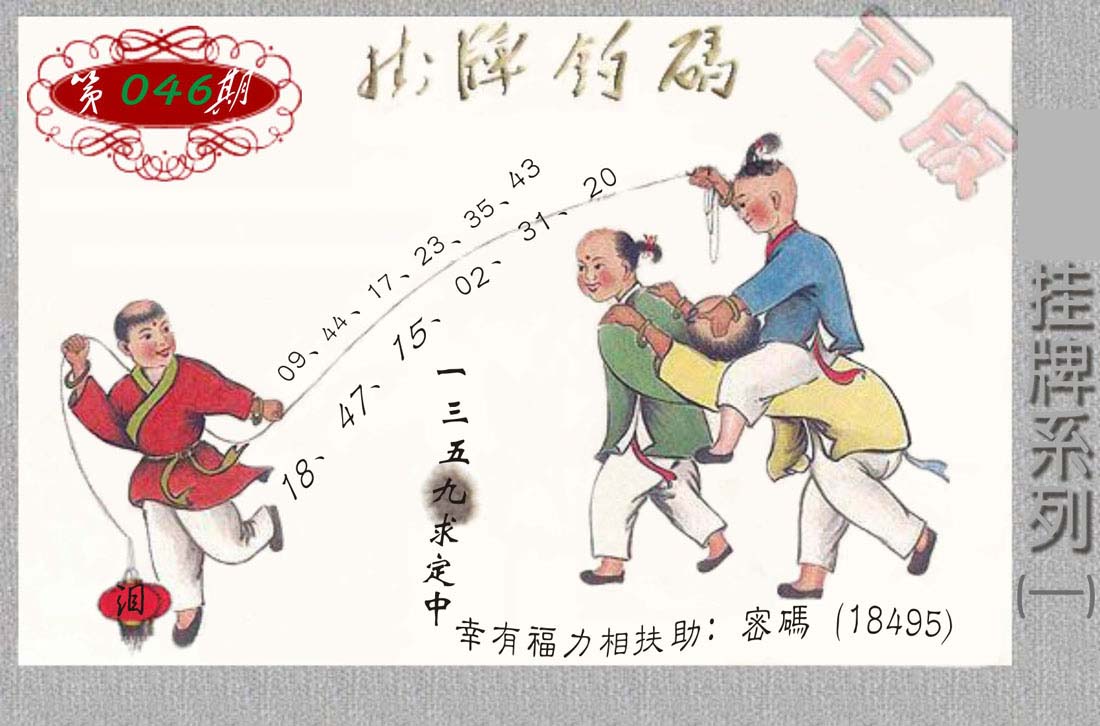 第046期
掛牌釣碼
正版
09、44、17、23、35、43
18、47、15、02、31、20
一三五九求定中
泪
幸有福力相扶助：密碼（18495）
挂牌系列(一)